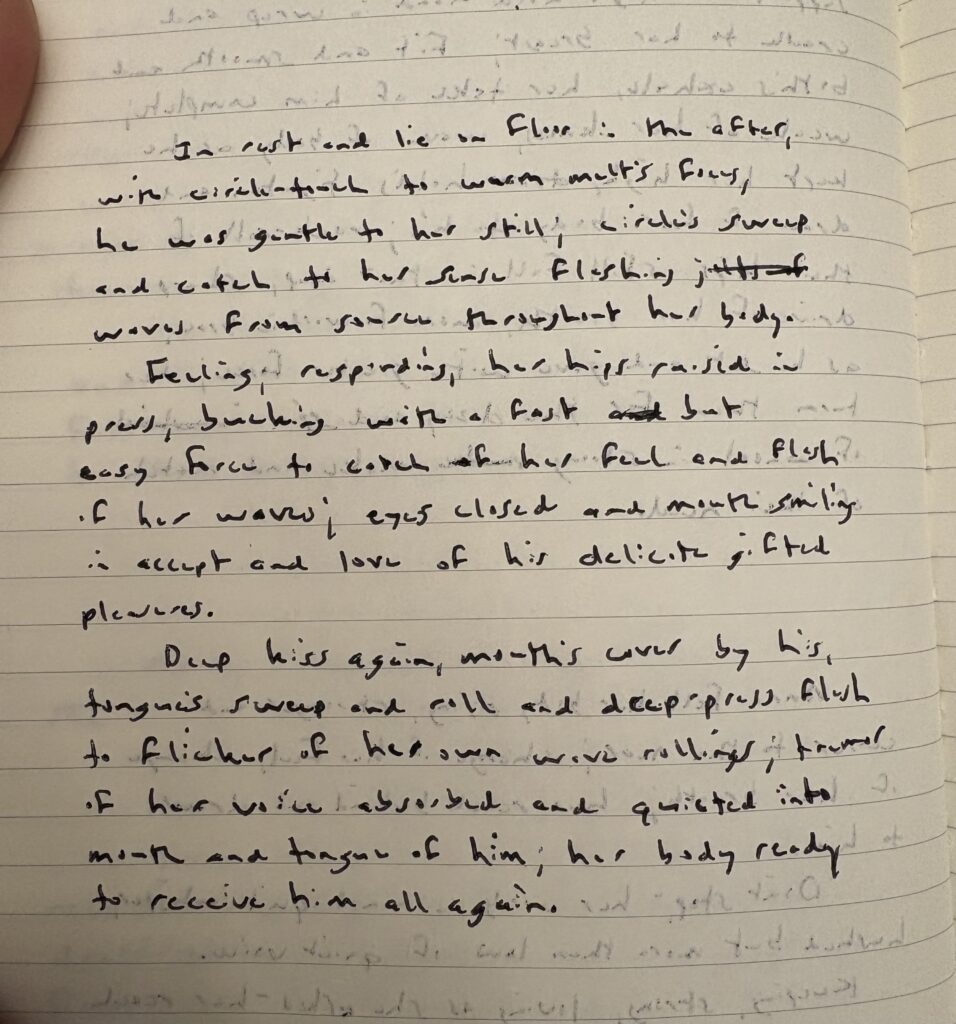 In rest and lie on floor in the after,
with circle-touch to warm melt's focus,
he was gentle to her still; circle's sweep
and catch to her sense flashing jolts of
waves from source throughout her body.
Feeling, responding, her hips raised in
press, bucking with a fast and but
easy force to catch of her feel and flash
of her waves; eyes closed and mouth smiling
in accept and love of his delicate gifted
pleasures.
Deep kiss again, mouth's cover by his,
tongue's sweep and roll and deep-press flush
to flicker of her own wave rollings; tremor
of her voice absorbed and quieted into
mouth and tongue of him; her body ready
to receive him all again.